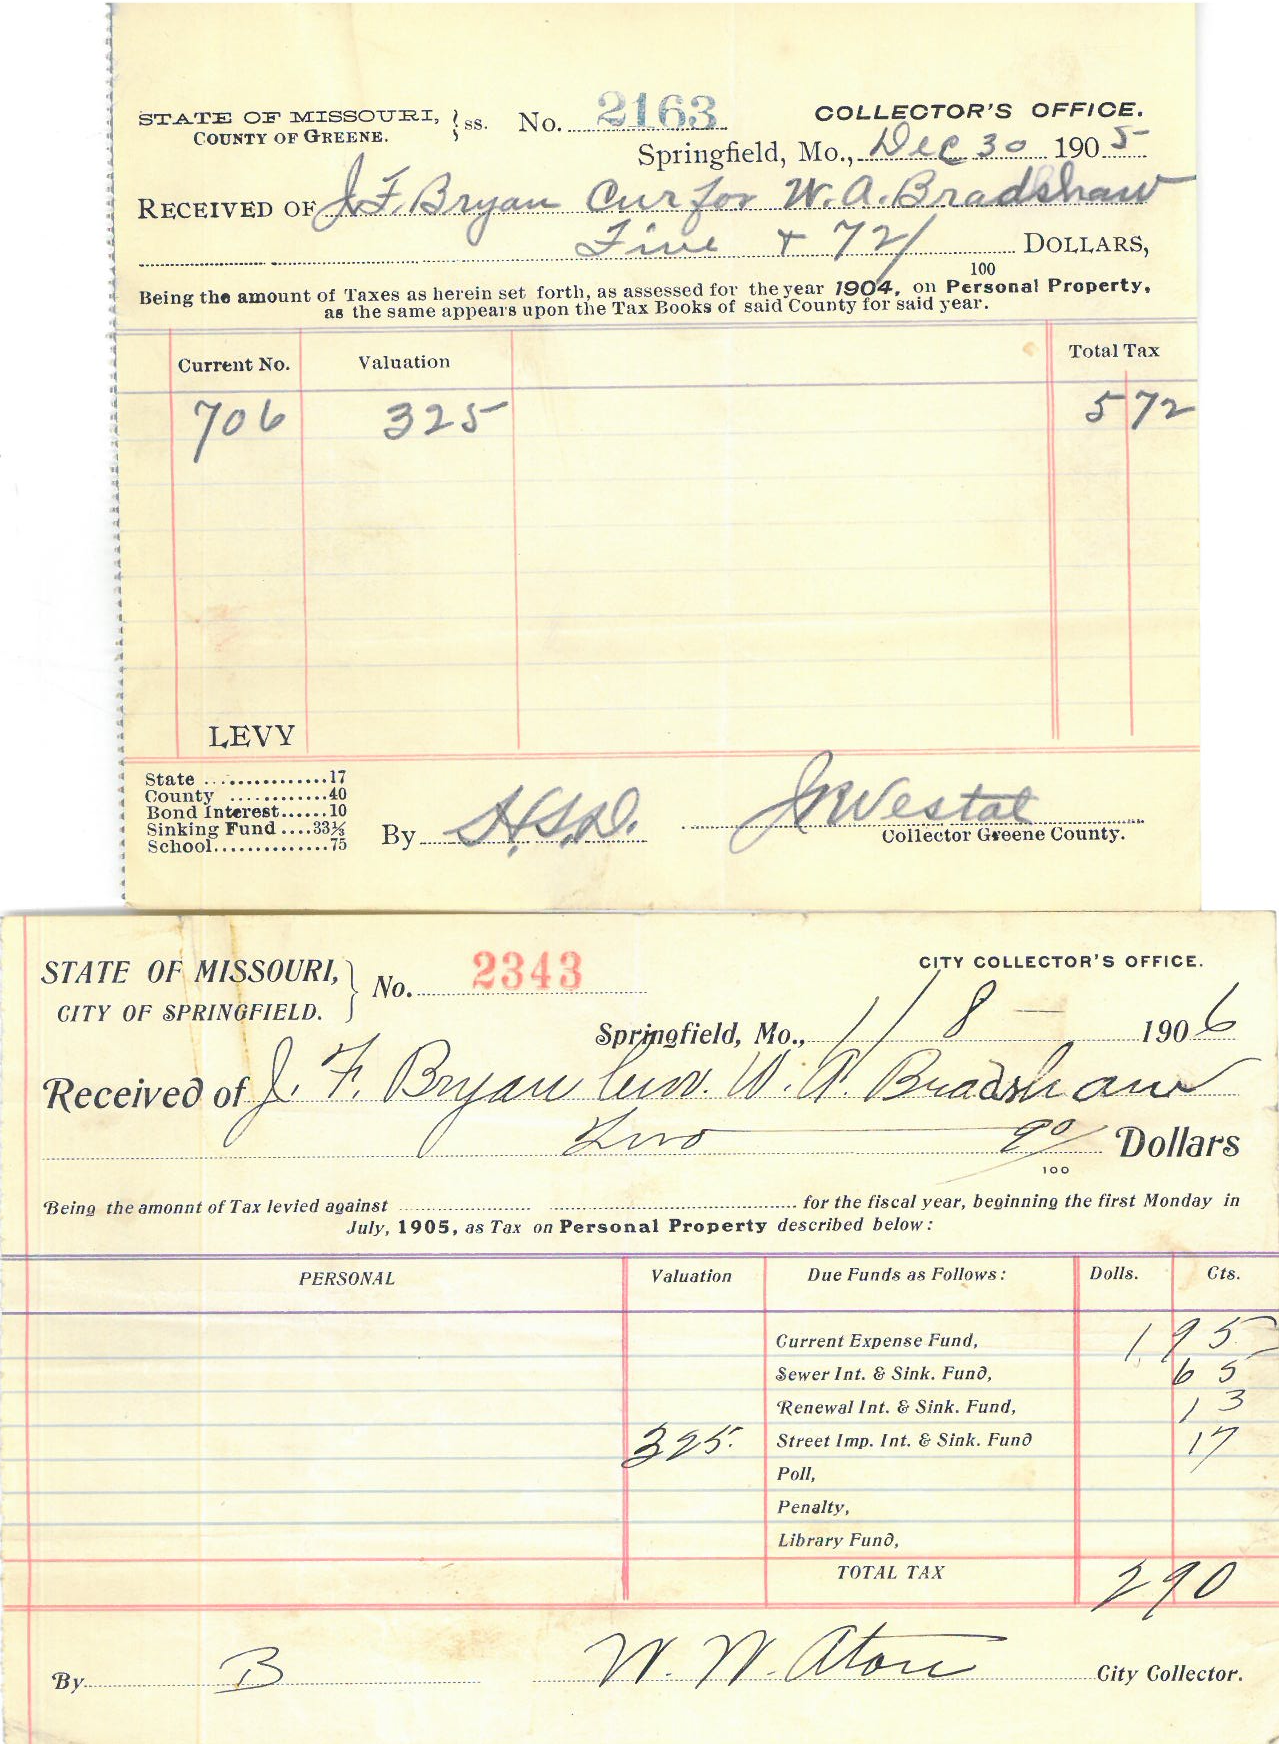 STATE OF MISSOURI, } ss. No. 2163 COLLECTOR'S OFFICE.
COUNTY OF GREENE.
Springfield, Mo., Dec 30 1905
RECEIVED OF J. F. Bryan Cur for W. A. Bradshaw
Five + 72/100 DOLLARS,
Being the amount of Taxes as herein set forth, as assessed for the year 1904, on Personal Property,
as the same appears upon the Tax Books of said County for said year.
Current No. Valuation Total Tax
706 325 5 72
LEVY
State .............17
County ............40
Bond Interest......10
Sinking Fund ....33⅓
School.............75
By H.S.D. J R Westal
Collector Greene County.
STATE OF MISSOURI, } No. 2343 CITY COLLECTOR'S OFFICE.
CITY OF SPRINGFIELD.
Springfield, Mo., 1/8 — 1906
Received of J. F. Bryan Cur. W. A. Bradshaw
Two 90/100 Dollars
Being the amonnt of Tax levied against for the fiscal year, beginning the first Monday in
July, 1905, as Tax on Personal Property described below:
PERSONAL Valuation Due Funds as Follows: Dolls. Cts.
Current Expense Fund, 1 95
Sewer Int. & Sink. Fund, 65
Renewal Int. & Sink. Fund, 13
325. Street Imp. Int. & Sink. Fund 17
Poll,
Penalty,
Library Fund,
TOTAL TAX 2 90
By B W. W. Aton City Collector.